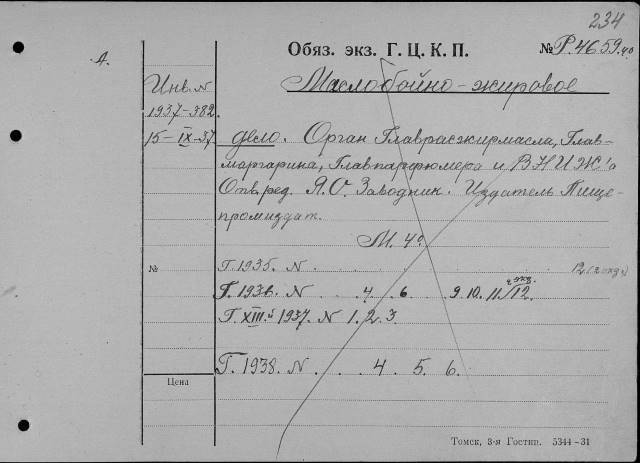 234
А.
Обяз. экз. Г. Ц. К. П. № Р.4659.40
Инв. N
1937-382
15-IX-37
Маслобойно-жировое
дело. Орган Главрасжирмасла, Глав-
маргарина, Главпарфюмера и ВНИИЖ'а
Отв. ред. Я. О. Заводник. Издатель Пище-
промиздат.
М. 4°.
№ Г. 1935. N . . . . 12 (2 экз.)
2 экз.
Г. 1936. N . . . 4 . 6 9. 10. 11./12.
Г. XIII. 1937. N 1. 2. 3
Г. 1938. N . . . 4. 5. 6.
Цена
Томск, 3-я Гостип. 5344-31